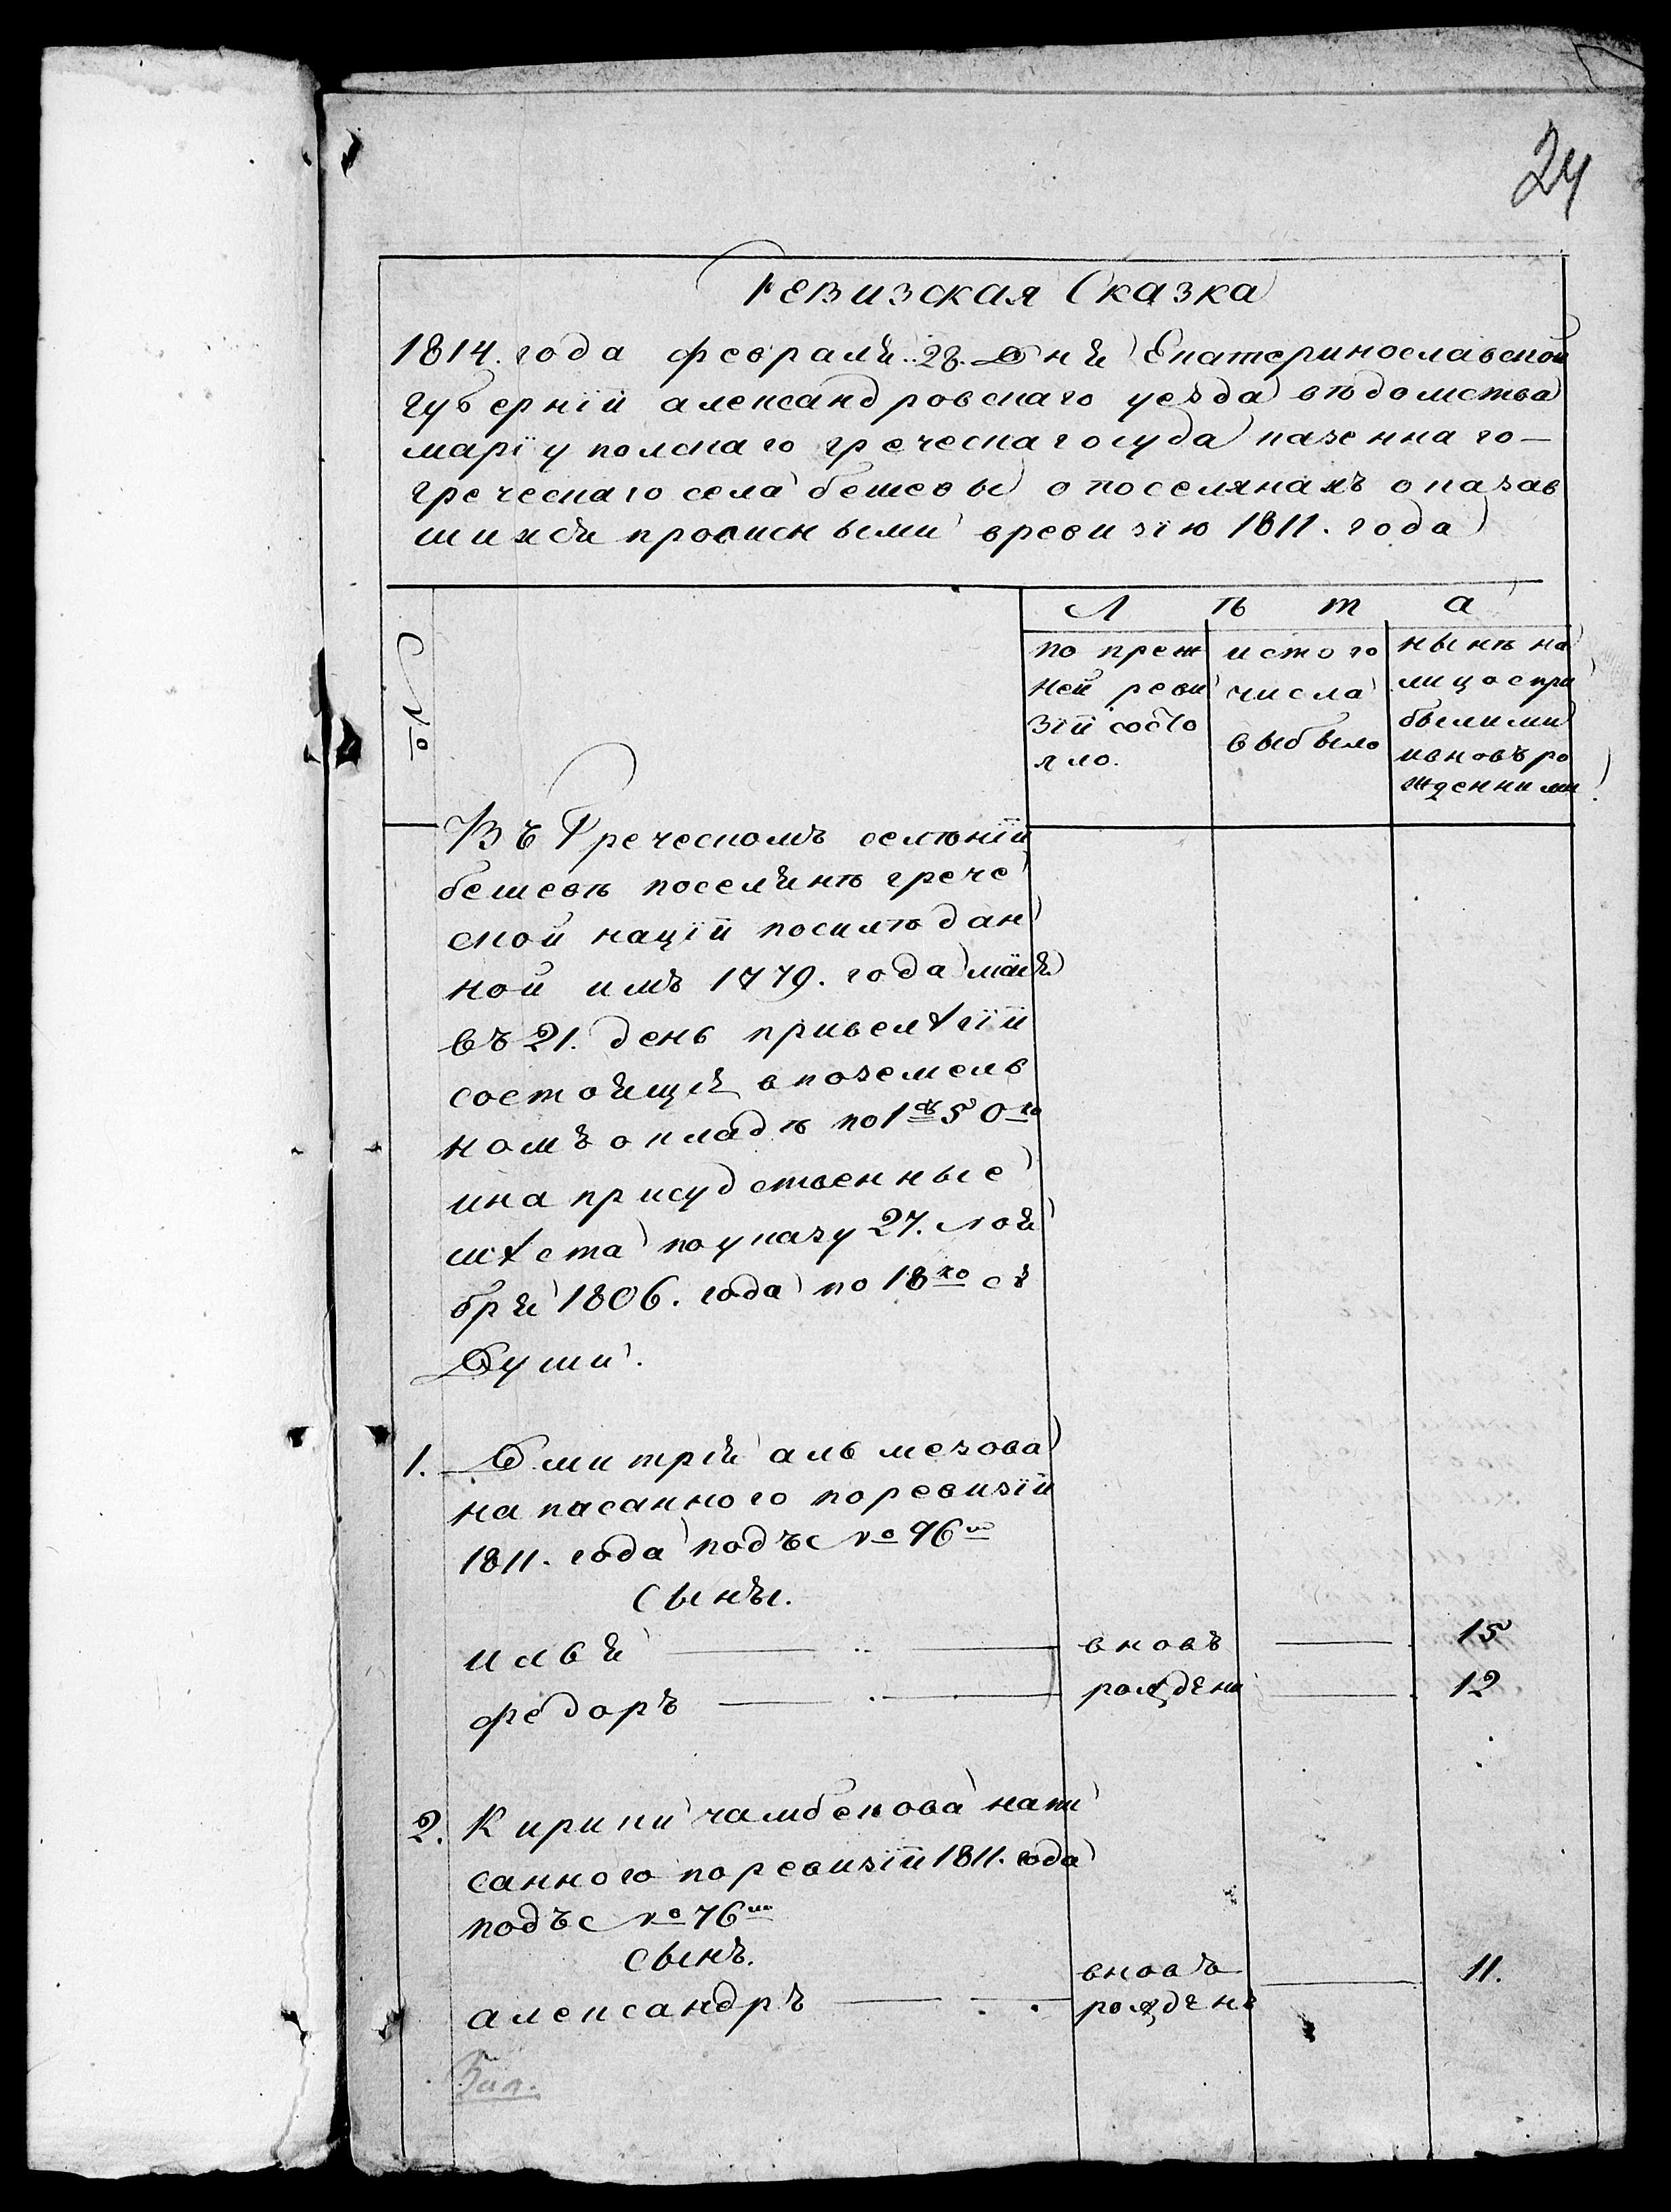 24
Ревизская Сказка
1814. года февраля 28. Дня Екатеринославской
губернїи александровскаго уезда вѣдомства
марїупольскаго греческаго суда казеннаго
греческаго села бешевы о поселянахъ оказав
шихся прописными вревизїю 1811. года
Лѣта
№о
по преж
ней реви
зїи состо
яло.
истого
числа
выбыло
нынѣ на
лицо с при
былими
ивновъ ро
жденними
Въ Греческомъ селѣнїи
бешевѣ поселянѣ грече
ской нацїи посилѣ дан
ной имъ 1779. года маия
въ 21. день привелѣгїи
состоящїя в поземель
номъ окладѣ по 1 50
ина присудственные
мѣста по указу 27. Ноя
бря 1806. года по 18 съ
Души.
1. Дмитрїя альмезова
написанного поревизїи
1811. года подъ №о 96
сынъи.
илья вновъ 15
федоръ рожденни 12
2. Кирики чамбекова напи
санного поревизїи 1811. года
подъ №о 76
сынъ.
александръ вновъ рожденъ 11.